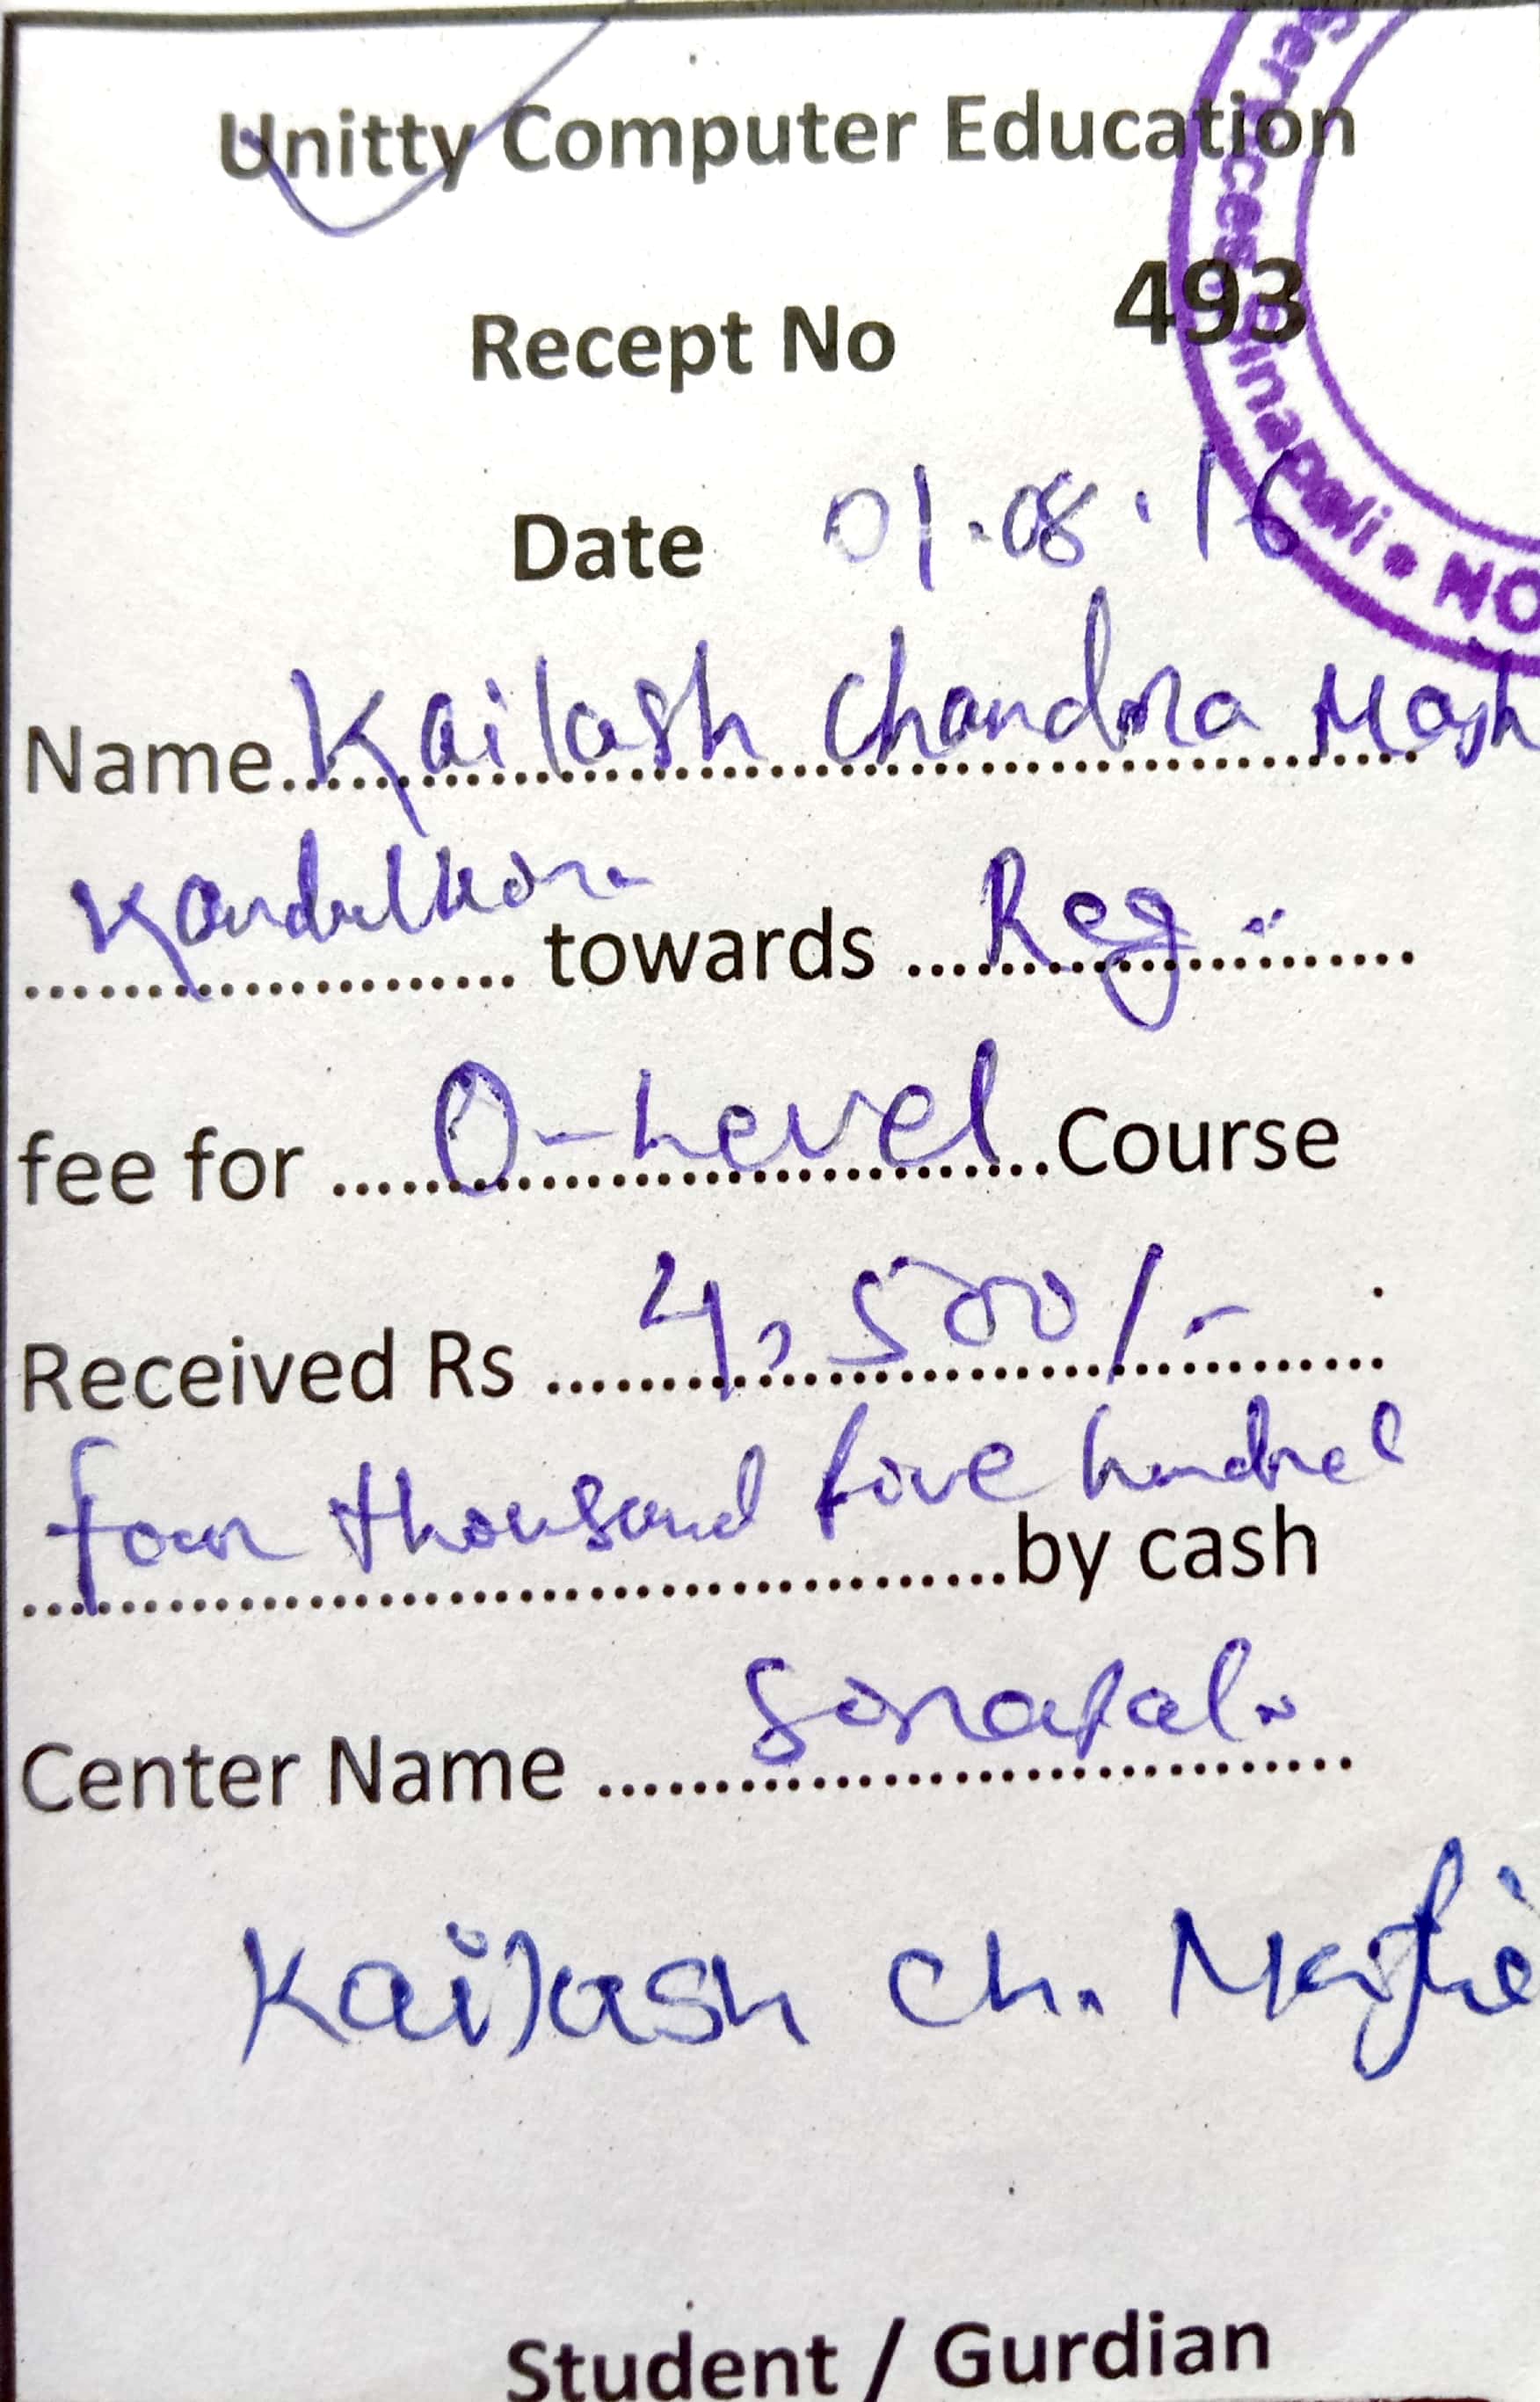 Unitty Computer Education
Recept No 493
Date 01.08.16
Name Kailash Chandra
towards Reg.
fee for O-Level Course
Received Rs 4,500/-
four thousand five hundred
by cash
Center Name
Kailash Ch. Majhi
Student / Gurdian